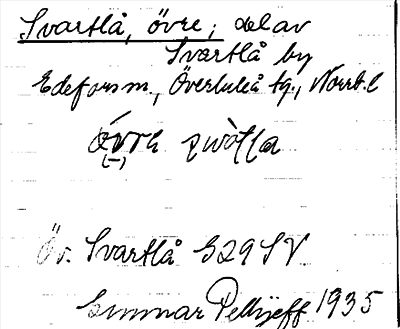 Svartlå, övre; del av
Svartlå by
Edefors sn., Överluleå tg., Norrb. l
Öv. Svartlå S29 SV
Gunnar Pellijeff 1935